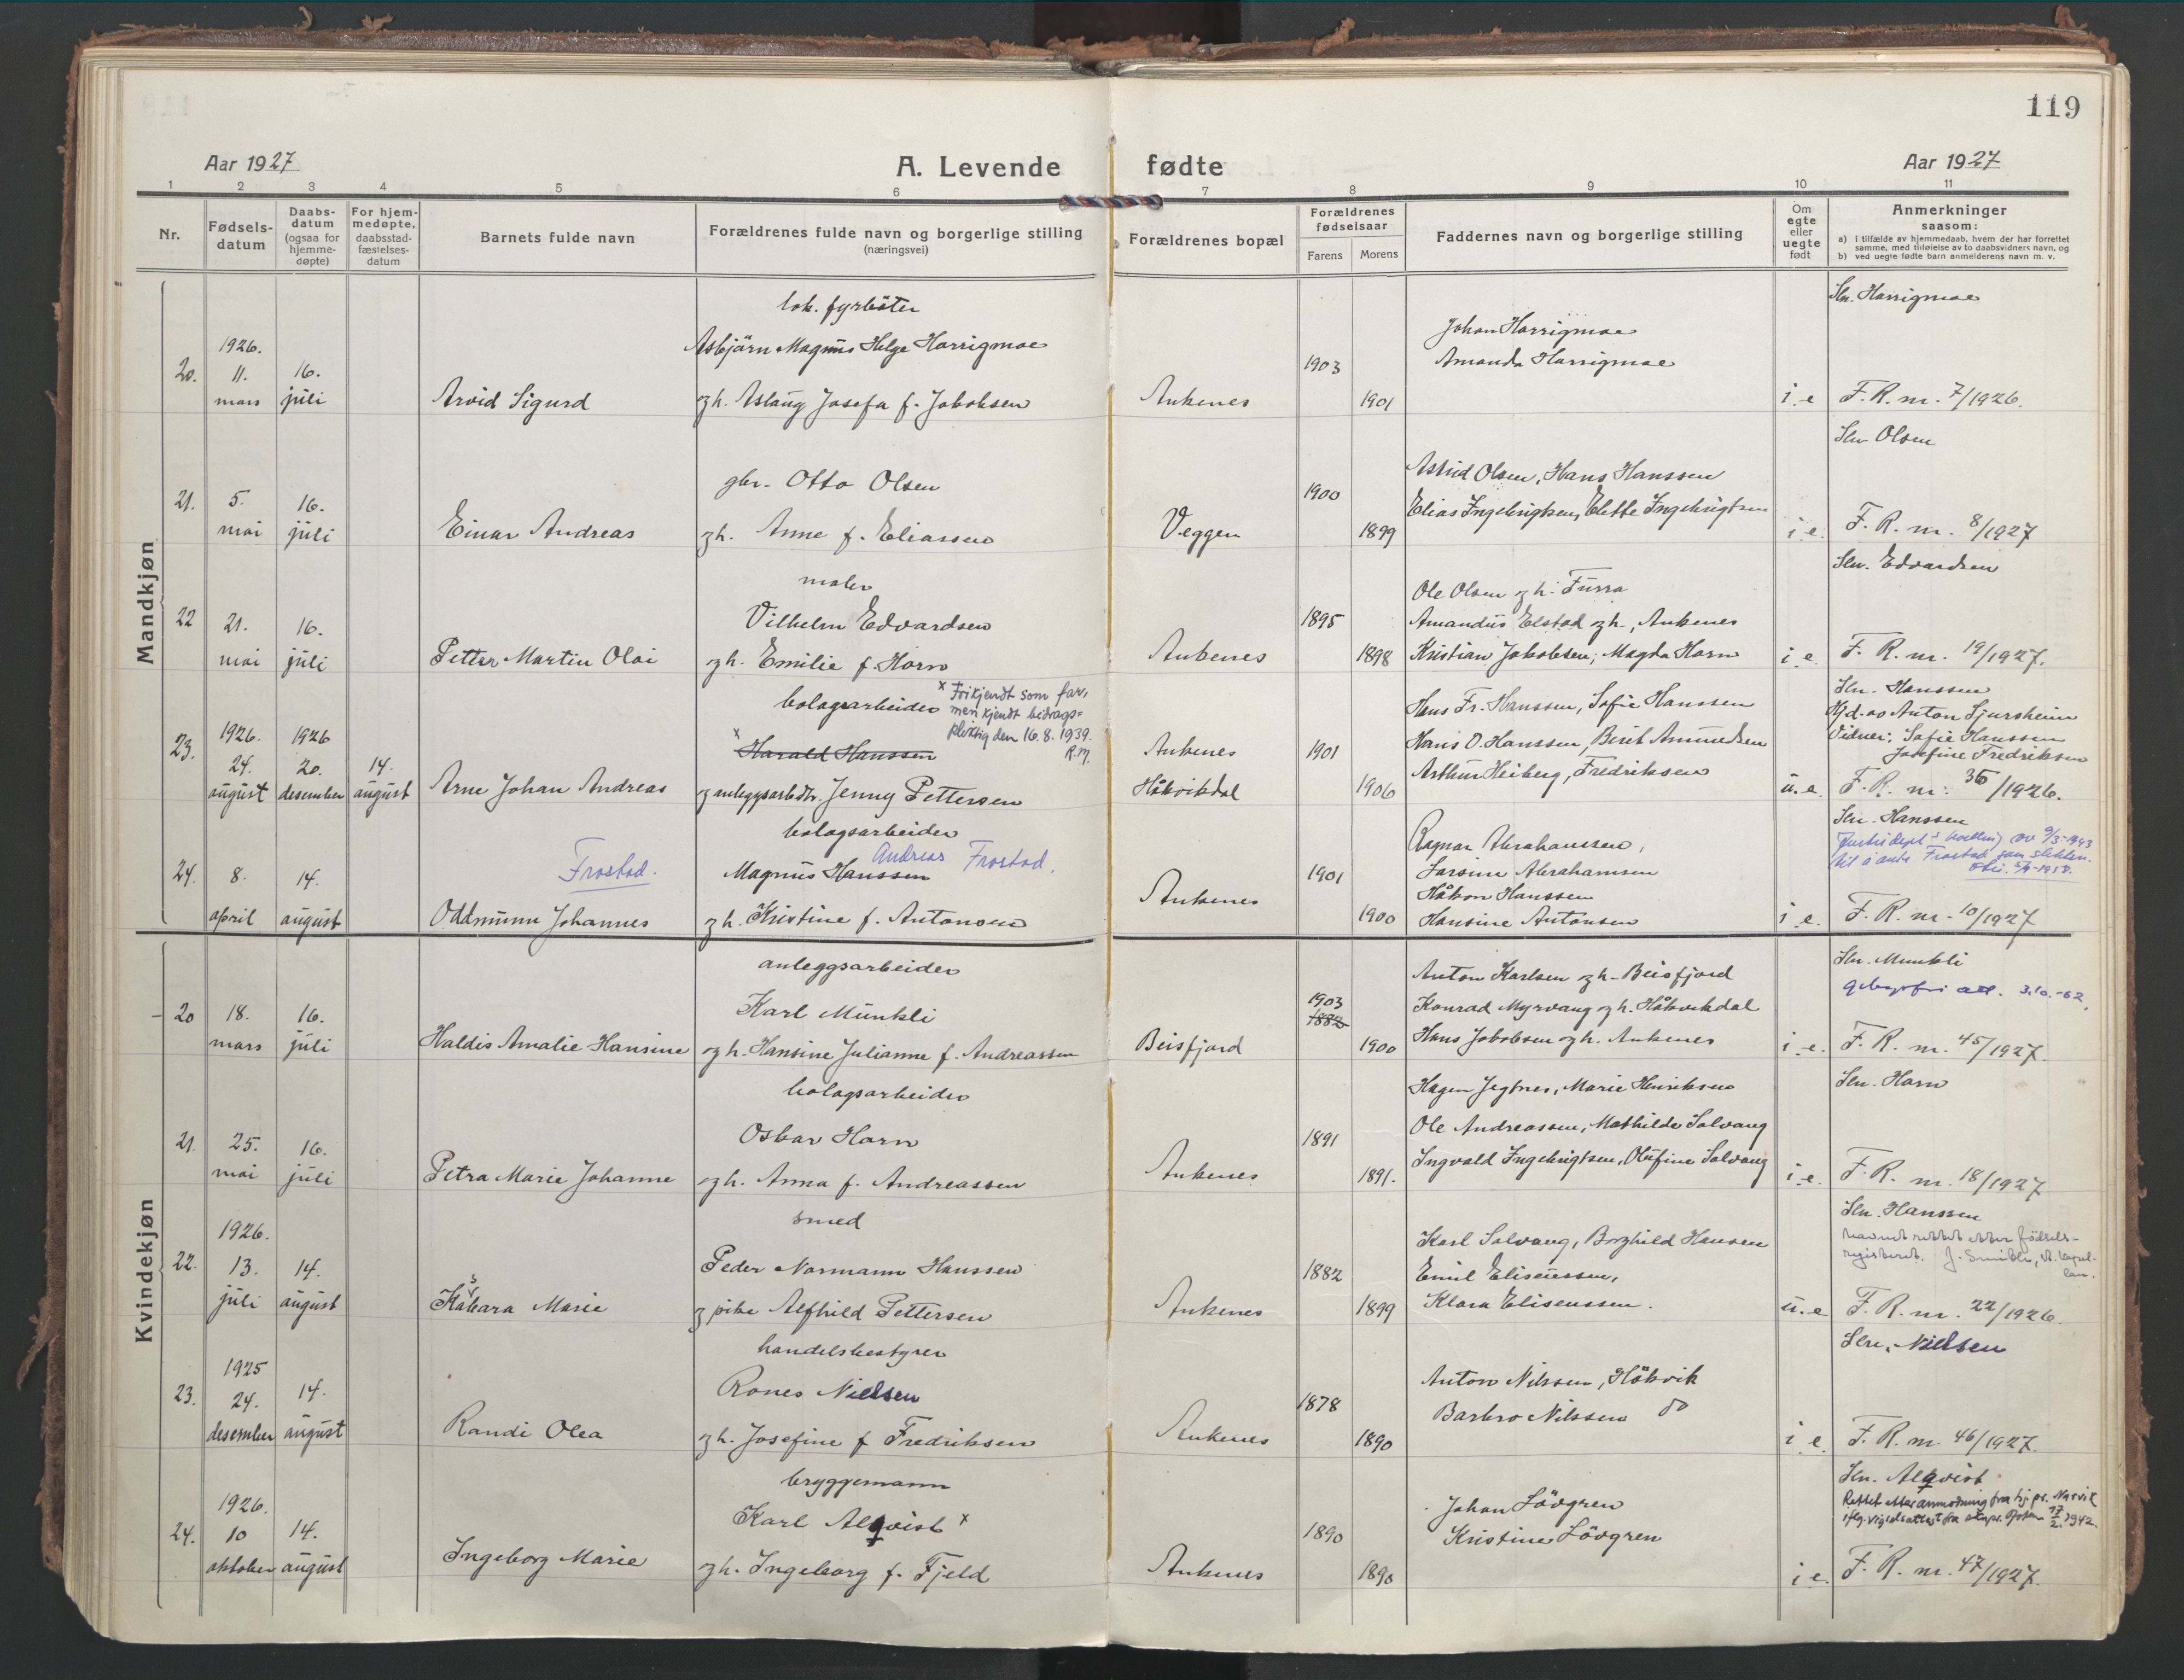 119
Aar 1927
A. Levende fødte
Aar 1927
1 2 3 4 5 6 7 8 9 10 11
Nr.
Fødsels-
datum
Daabs-
datum
(ogsaa for
hjemme-
døpte)
For hjem-
medøpte,
daabsstad-
fæstelses-
datum
Barnets fulde navn
Forældrenes fulde navn og borgerlige stilling
(næringsvei)
Forældrenes bopæl
Forældrenes
fødselsaar
Farens Morens
Faddernes navn og borgerlige stilling
Om
egte
eller
uegte
født
Anmerkninger
saasom:
a) I tilfælde av hjemmedaab, hvem der har forrettet
samme, med tilføielse av to daabsvidners navn, og
b) ved uegte fødte barn anmelderens navn m. v.
Mandkjøn
20.
1926.
11.
mars
16.
juli
Arvid Sigurd
lok. fyrbøter
Asbjörn Magnus Helge Harrigmoe
og h. Aslaug Josefa f. Jakobsen
Ankenes
1903
1901
Johan Harrigmoe
Amanda Harrigmoe
i. e
Sln. Harrigmoe
F. R. nr. 7/1926.
21.
5.
mai
16.
juli
Einar Andreas
gbr. Otto Olsen
og h. Anne f. Eliassen
Veggen
1900
1899
Astrid Olsen, Hans Hanssen
Elias Ingebrigtsen, Elette Ingebrigtsen
i. e.
Sln Olsen
F. R. nr. 8/1927
22
21.
mai
16.
juli
Petter Martin Olai
maler
Vilhelm Edvardsen
og h. Emilie f. Horn
Ankenes
1895
1898
Ole Olsen og h. Furra
Amandus Elstad og h., Ankenes
Kristian Jakobsen, Magda Horn
i. e.
Sln. Edvardsen
F. R. nr. 19/1927.
23.
1926.
24.
august
1926
20.
desember
14.
august
Arne Johan Andreas
bolagsarbeider
x Frikjendt som far,
men kjendt bidrags-
pliktig den 16.8.1939.
R.M.
x Harald Hanssen
og anleggsarbdtr. Jenny Pettersen
Ankenes
Håkvikdal
1901
1906
Hans Fr. Hanssen, Sofie Hanssen
Hans O. Hanssen, Berit Amundsen
Arthur Heiberg, Fredriksen
u. e.
Sln. Hanssen
Hjd. av Anton Sjursheim
Vidner: Sofie Hanssen
Josefine Fredriksen
F. R. nr. 36/1926.
24.
8.
april
14.
august
Frostad.
Oddmunn Johannes
bolagsarbeider
Andreas Frostad.
Magnus Hanssen
og h. Kristine f. Antonsen
Ankenes
1901
1900
Ragnar Abrahamsen,
Sarsine Abrahamsen
Håkon Hanssen
Hansine Antonsen
i. e.
Sln. Hanssen
av 9/3-1943
til å anta Frostad som slektsn.
F. R. nr. 10/1927
Kvindekjøn
20
18.
mars
16.
juli
Haldis Amalie Hansine
anleggsarbeider
Karl Munkli
og h. Hansine Julianne f. Andreassen
Beisfjord
1903
1882
1900
Anton Karlsen og h. Beisfjord
Konrad Myrvang og h. Håkvikdal
Hans Jakobsen og h. Ankenes
i. e.
Sln. Munkli
gebyrfri att. 3.10.-62.
F. R. nr. 45/1927.
21.
25.
mai
16.
juli
Petra Marie Johanne
bolagsarbeider
Oskar Horn
og h. Anna f. Andreassen
Ankenes
1891
1891.
Hagen Jegtnes, Marie Henriksen
Ole Andreassen, Mathilde Solvang
Ingvald Ingebrigtsen, Olufine Solvang
i. e.
Sln. Horn
F. R. nr. 18/1927
22.
1926.
13.
juli
14.
august
s
Kåbara Marie
smed
Peder Normann Hanssen
og pike Alfhild Pettersen
Ankenes
1882
1899
Karl Solvang, Borghild Hansen
Emil Eliseussen,
Klara Eliseussen.
u. e
Sln. Hanssen
Navnet rettet etter fødsels-
registeret. J. Smibli, st. kapel-
lan.
F. R. nr. 22/1926.
23.
1925
24.
desember
14.
august
Randi Olea
handelsbestyrer
Rones Nielsen
og h. Josefine f Fredriksen
Ankenes
1878
1890
Anton Nilssen, Håkvik
Barbro Nilssen do
i e.
Sln. Nielsen
F. R. nr. 46/1927.
24.
1926.
10
oktober
14.
august
Ingeborg Marie
bryggemann
Karl Alqvist x
og h. Ingeborg f. Fjeld
Ankenes
1890
1890
Johan Lövgren
Kristine Lövgren
i e.
Sln. Alqvist
Rettet etter anmodning fra hj.pr. Narvik
iflg. vigselsattest fra 17/2. 1942.
F. R. nr. 47/1927.